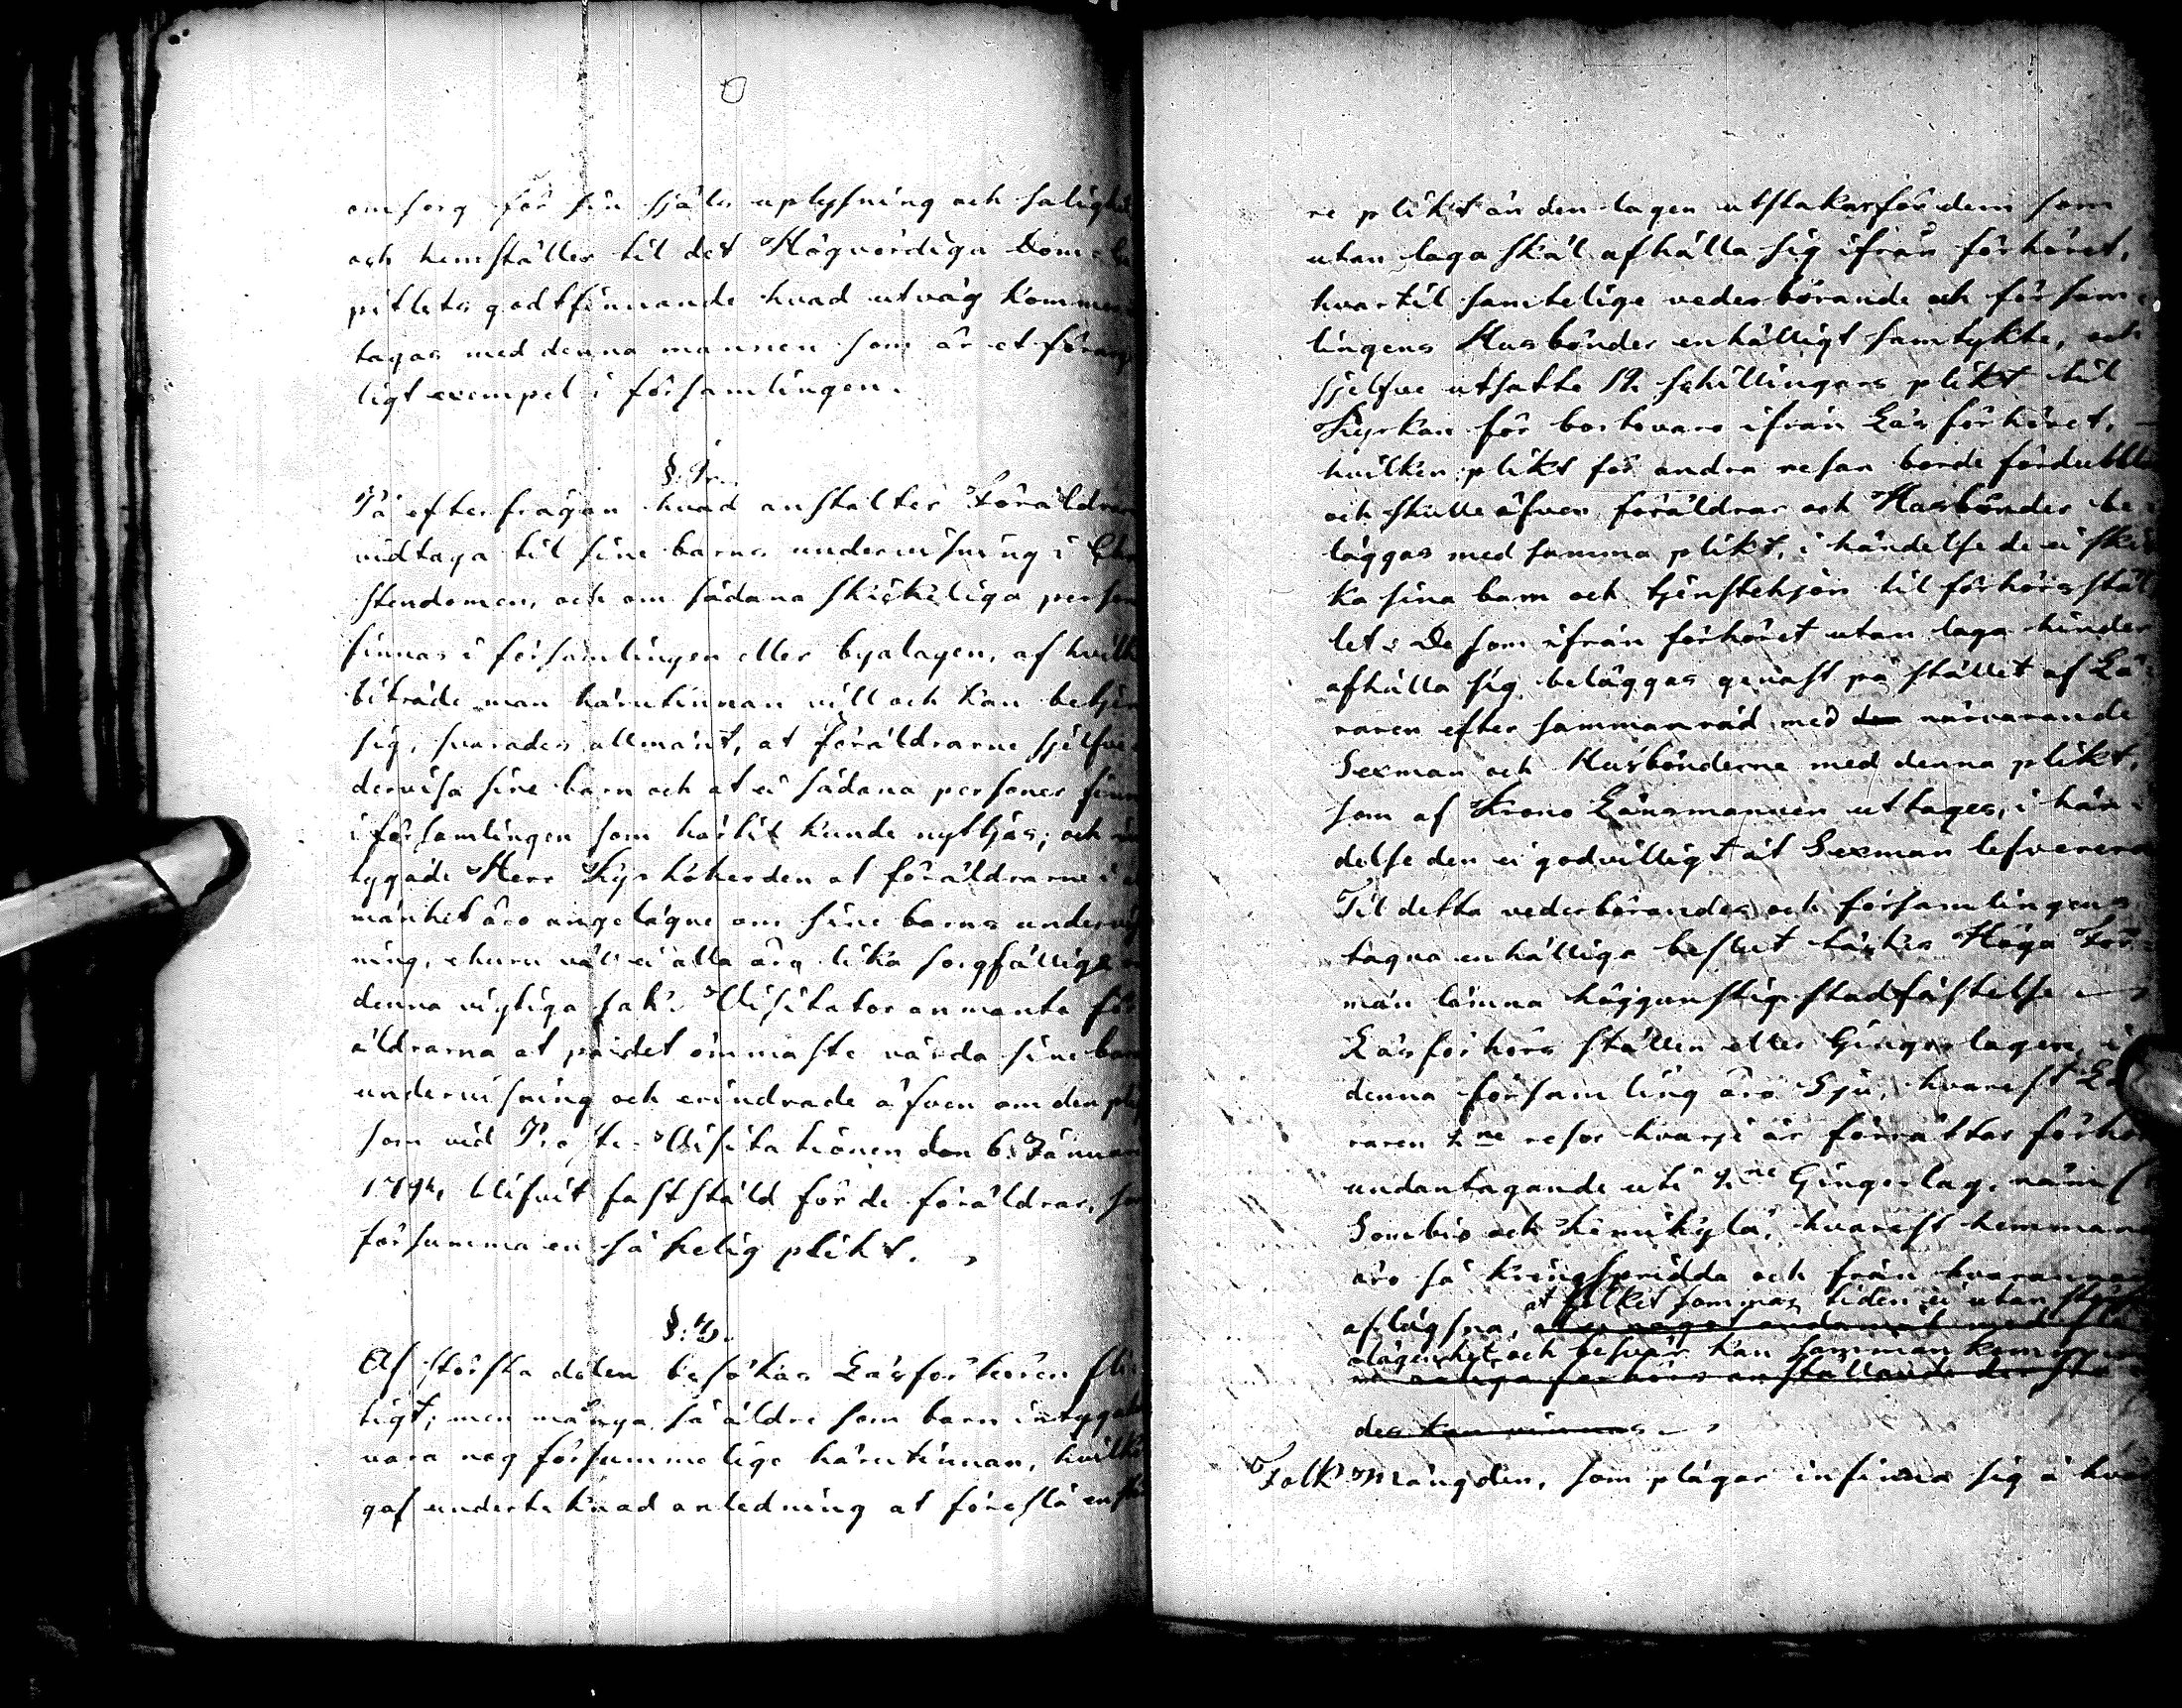 omsorg för sin själs uplysning och salighet
och hemställer til det Högvördiga Domca
pitlets godtfinnande hvad utväg kommer
tagas med denna mannen som är et förarge
ligt exempel i församlingen.
§.
På efterfrågan hvad anstalter Föräldrar
vidtaga til sine barns undervisning i Chri
stendomen, och om sådana skickeliga person
finnas i församlingen eller byalagen, af hvilk
biträde man härutinnan vill och kan betjen
sig, svarades allmänt, at föräldrarne sjelfve
dervisa sine barn och at ei sådana personer finn
i församlingen som härtil kunde nyttjas; och
tygade Herr Kyrkoherden at föräldrarne i
mänhet äro angelägne om sine barns undervis
ning, ehuru väl ei alla äro lika sorgfällige
denna vigtiga sak. Visitator anmante för
äldrarna at på det ömmaste vårda sine barn
undervisning och erindrade äfven om den plig
som vid Prosts-Visitationen den 6. Januari
blifvit faststäld för de föräldrar, som
försumma en så helig plikt.
§.
Af största delen besökas Läsförhören fli
tigt; men många så äldre som barn intygade
vara nog försummelige härutinnan, hvilket
gaf undertecknad anledning at föreslå en
re plikt än den lagen utstakar för dem som
utan laga skäl afhålla sig ifrån förhöret,
hvartil samtelige vederbörande och försam
lingens Husbönder enhälligt samtykte, och
sjelfve utsatte 12 schillingars plikt til
Kyrkan för bortovaro ifrån Läsförhöret,
hvilken plikt för andra resan borde fördubbla
och skulle äfven föräldrar och Husbönder be
läggas med samma plikt, i händelse de ei skic
ka sina barn och tjenstehjon til förhörsstäl
let. De som ifrån förhöret utan laga hinder
afhålla sig beläggas genast på stället af Lä
raren efter sammanråd med den närvarande
Sexman och Husbönderne med denna plikt,
som af Krono Länsmannen uttages, i hän
delse den ei godvilligt åt Sexman lefverera
Til detta vederbörandes och församlingens
tagna enhälliga beslut täckes Höga För
män lämna höggunstig stadfästelse
Läsförhörs ställen eller Gingerslagen i
denna församling äro Sju, hvarest Lä
raren 2ne resor hvarje år förrättar förhör
undantagande uti 2ne Gingerslag, näml
Sonnbis och Känikylä, hvarest hemmanen
äro så kringspridda och från hvarannan
at folket sommars tiden ei utan
aflägsna,
olägenhet och besvär kan samman komma
Folk Mängden, som plägar infinna sig å hvar